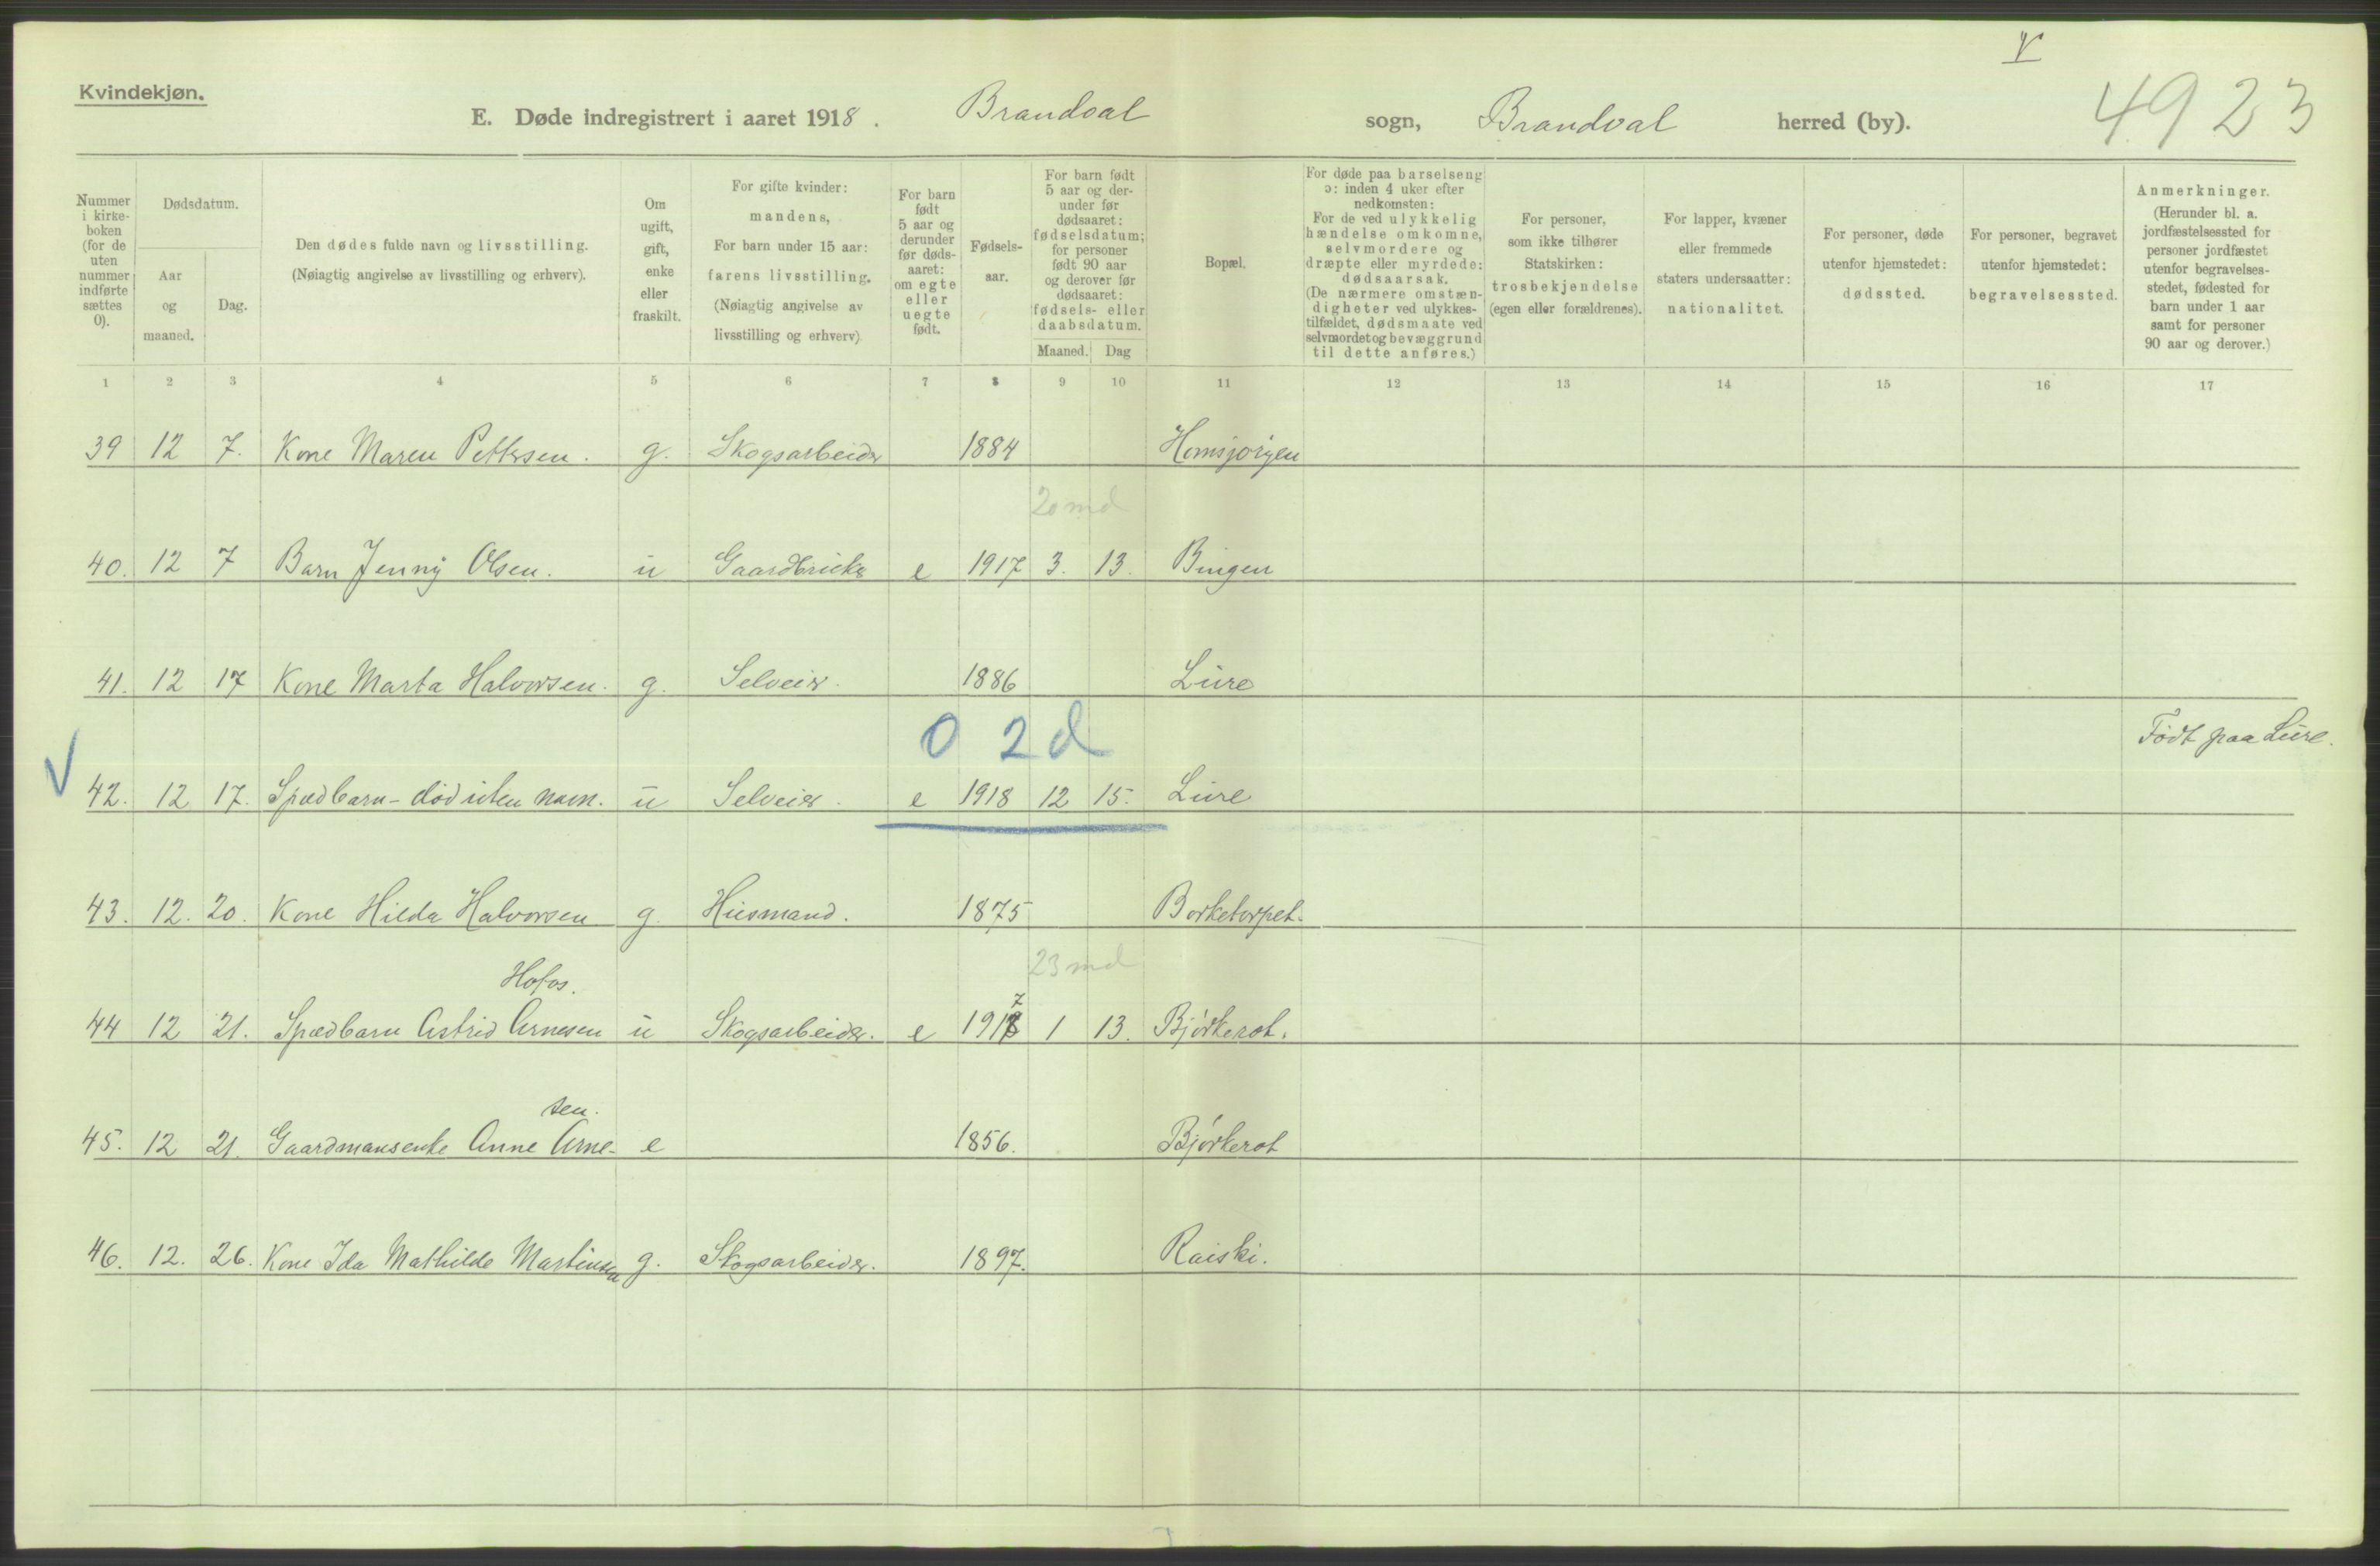 V
Kvindekjøn.
4923
E. Døde indregistrert i aaret 1918. Brandval sogn, Brandval herred (by).
Nummer i kirke-boken (for de uten nummer indførte sættes 0).
Dødsdatum.
Aar og maaned.
Dag.
Den dødes fulde navn og livsstilling.
(Nøiagtig angivelse av livsstilling og erhverv).
Om ugift, gift, enke eller fraskilt.
For gifte kvinder: mandens,
For barn under 15 aar: farens livsstilling.
(Nøiagtig angivelse av livsstilling og erhverv)
For barn født 5 aar og derunder før døds-aaret: om egte eller uegte født.
Fødsels-aar.
For barn født 5 aar og der-under før dødsaaret: fødselsdatum; for personer født 90 aar og derover før dødsaaret: fødsels- eller daabsdatum.
Maaned. Dag
Bopæl.
For døde paa barselseng ɔ: inden 4 uker efter nedkomsten:
For de ved ulykkelig hændelse omkomne, selvmordere og dræpte eller myrdede: dødsaarsak.
(De nærmere omstæn-digheter ved ulykkes-tilfældet, dødsmaate ved selvmordet og bevæggrund til dette anføres.)
For personer, som ikke tilhører Statskirken: trosbekjendelse (egen eller forældrenes).
For lapper, kvæner eller fremmede staters undersaatter: nationalitet.
For personer, døde utenfor hjemstedet: dødssted.
For personer, begravet utenfor hjemstedet: begravelsessted.
Anmerkninger.
(Herunder bl. a. jordfæstelsessted for personer jordfæstet utenfor begravelses-stedet, fødested for barn under 1 aar samt for personer 90 aar og derover.)
1 2 3 4 5 6 7 8 9 10 11 12 13 14 15 16 17
39 12 7. Kone Maren Pettersen. g. Skogsarbeider 1884
20 md
40. 12 7 Barn Jenny Olsen. u Gaardbruker e 1917 3. 13. Bingen
41. 12 17 Kone Marta Halvorsen. g. Selveier. 1886 Lure
0 2 d
Født paa Lure.
V 42. 12 17. Spædbarn - død uten navn. u Selveier. e 1918 12 15. Lure
43. 12. 20. Kone Hilda Halvorsen g. Husmand. 1875 Borketorpet.
23 md
Hofos.
7
44 12 21. Spædbarn Astrid Arnesen u Skogsarbeider. e 1918 1 13. Bjørkerot.
sen.
45. 12 21. Gaardmansenke Anne Arne- e 1856. Bjørkerot
46. 12. 26. Kone Ida Mathilde Martinsen g. Skogsarbeider. 1897. Raiski.